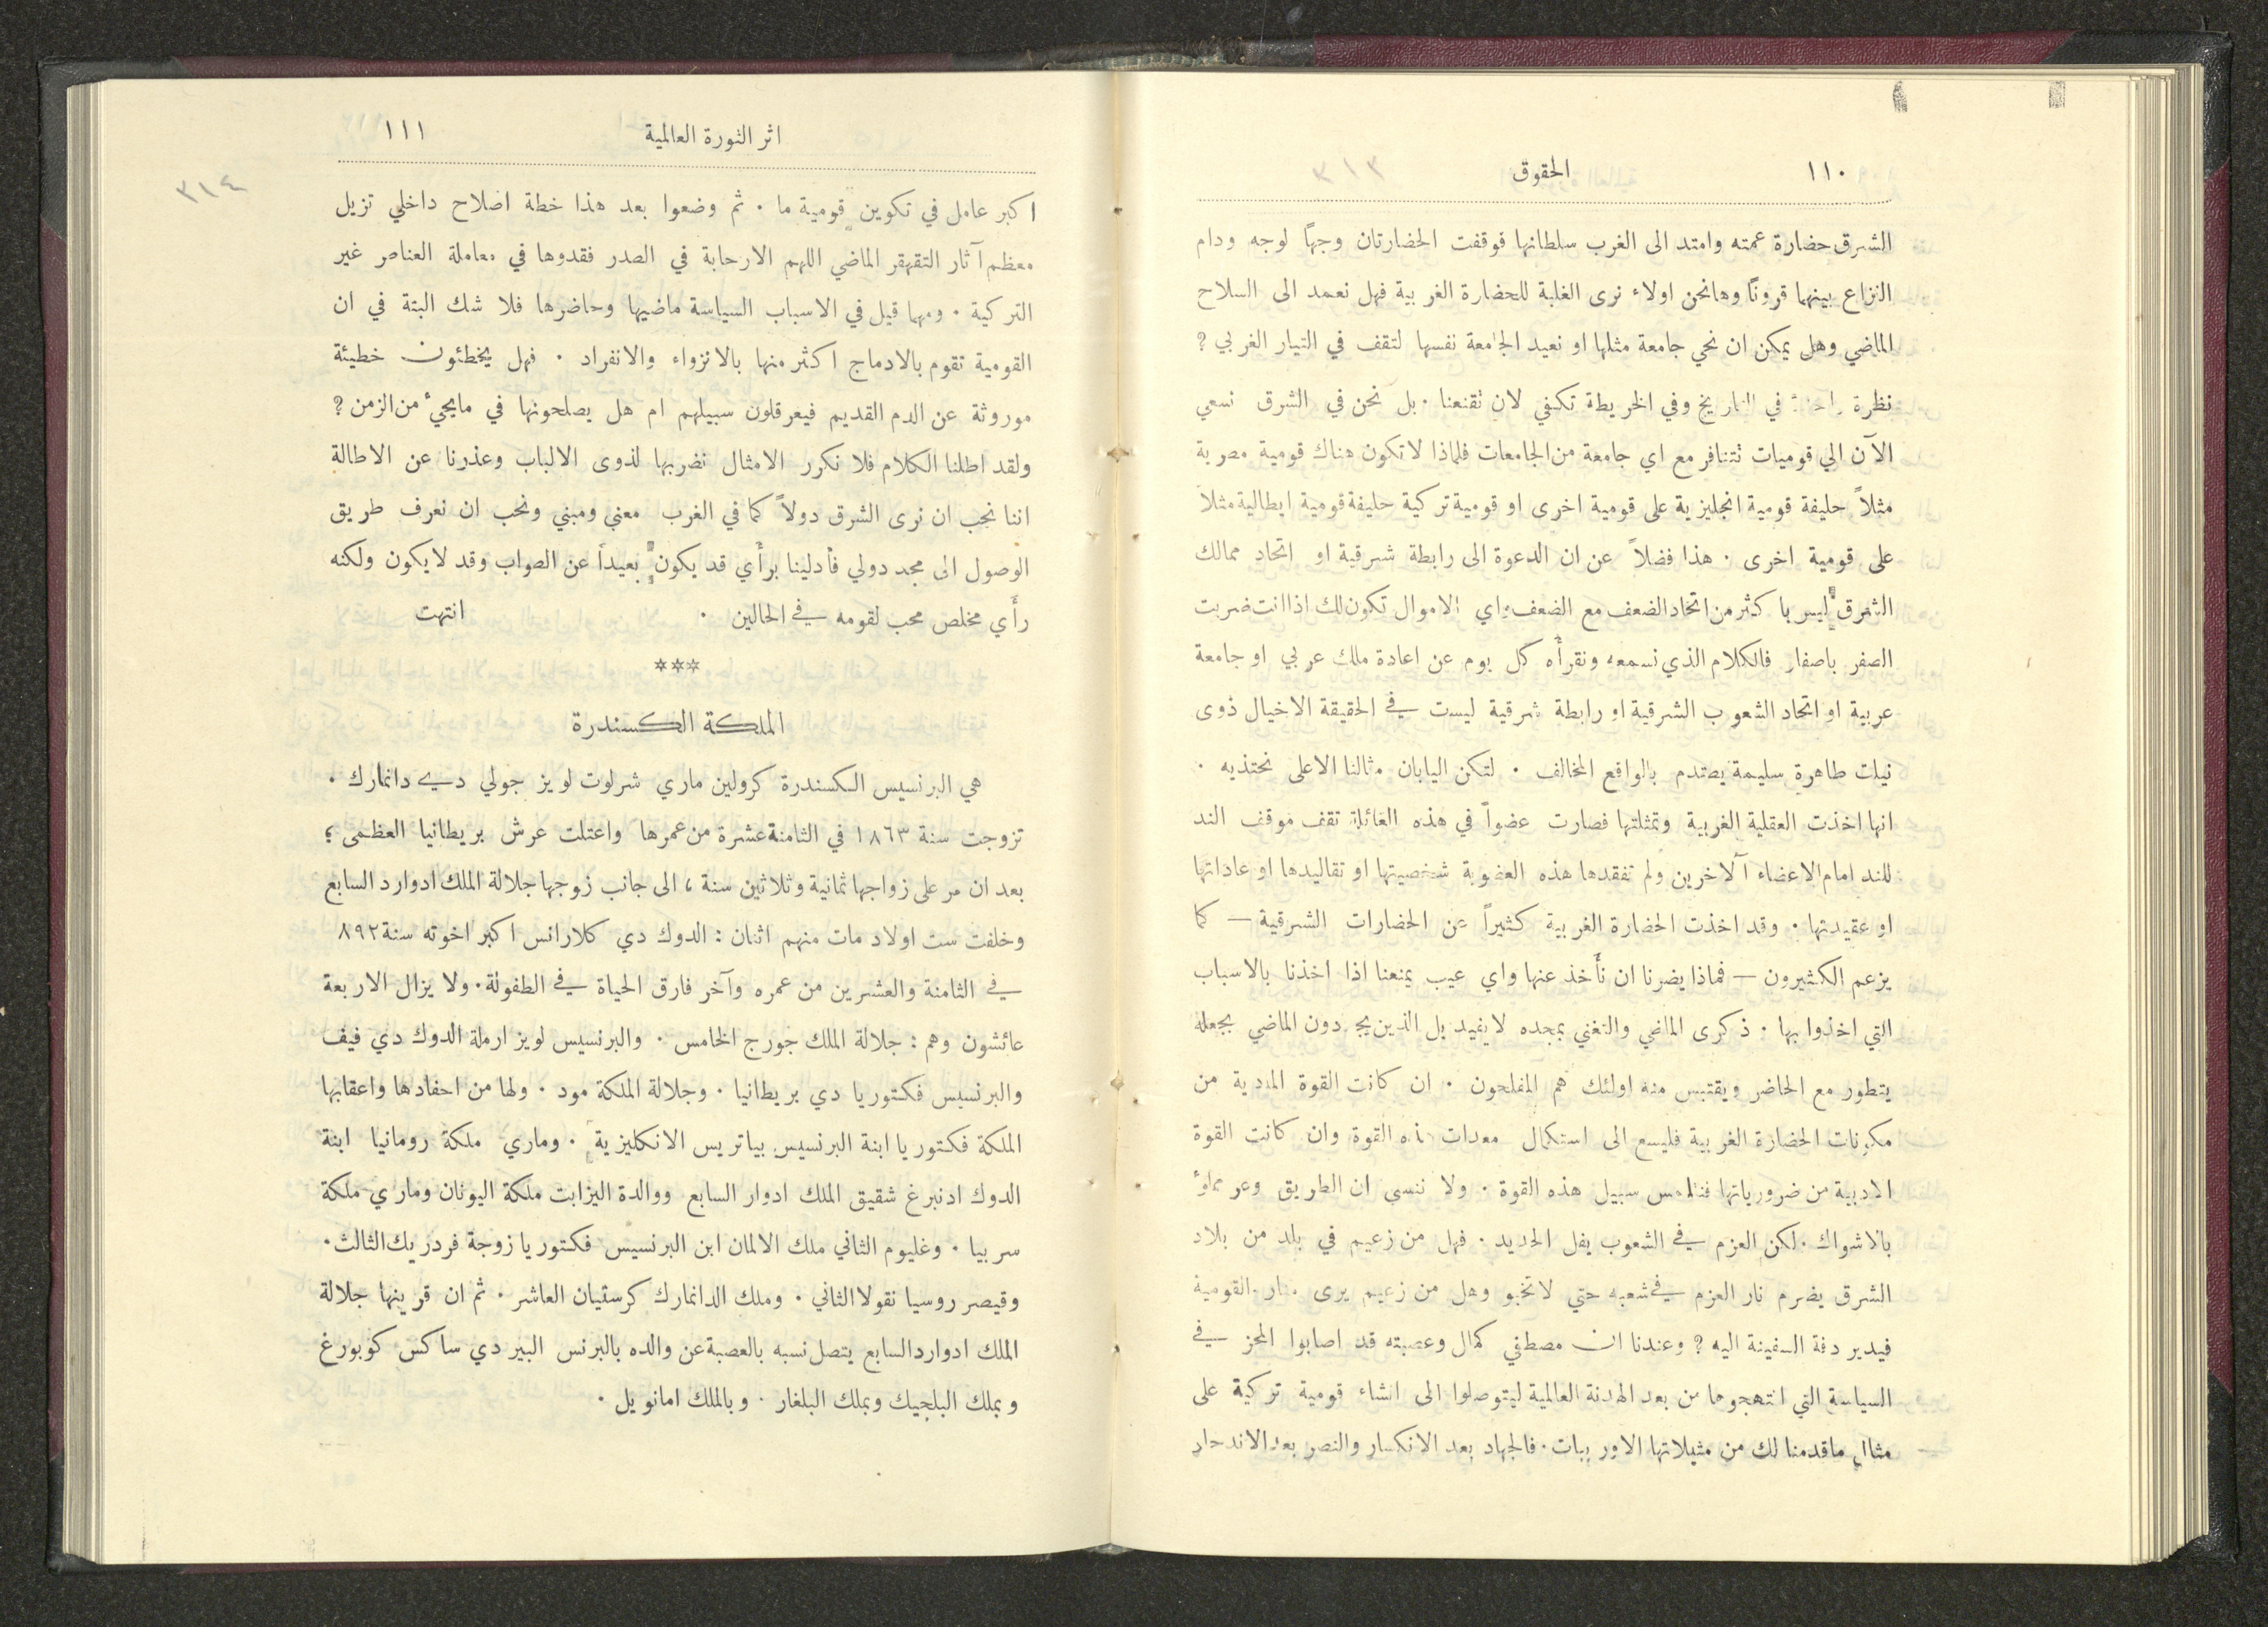 ١١٠
الحقوق
٣١٣
الشرق حضارة عمته وامتد الى الغرب سلطانها فوقفت الحضارتان وجهاً لوجه ودام
النزاع بينهما قروناً وهانحن اولاء نرى الغلبة للحضارة الغربية فهل نعمد الى السلاح
الماضي وهل يمكن ان نحي جامعة مثلها او نعيد الجامعة نفسها لتقف في التيار الغربي ?
نظرة واحدة في التاريخ وفي الخريطة تكفي لان تقنعنا . بل نحن في الشرق نسعي
الآن الي قوميات تتنافر مع اي جامعة من الجامعات فلماذا لاتكون هناك قومية مصرية
مثلاً حليفة قومية انجليزية على قومية اخرى او قومية تركية حليفة قومية ايطالية مثلاً
على قومية اخرى . هذا فضلاً عن ان الدعوة الى رابطة شرقية او اتحاد ممالك
الشرق ليس باكثر من اتحاد الضعف مع الضعف واي الاموال تكون لك اذا انت ضربت
الصفر باصفار فالكلام الذي نسمعه ونقرأه كل يوم عن اعادة ملك عربي او جامعة
عربية او اتحاد الشعوب الشرقية او رابطة شرقية ليست في الحقيقة الاخيال ذوى
نيات طاهرة سليمة يصتدم بالواقع المخالف . لتكن اليابان مثالنا الاعلى نحتذيه .
انها اخذت العقلية الغربية وتمثلتها فصارت عضواً في هذه العائلة تقف موقف الند
للند امام الاعضاء الآخرين ولم تفقدها هذه العضوية شخصيتها او تقاليدها او عاداتها
او عقيدتها . وقد اخذت الحضارة الغربية كثيراً عن الحضارات الشرقية — كما
يزعم الكثيرون — فماذا يضرنا ان نأخذ عنها واي عيب يمنعنا اذا اخذنا بالاسباب
التي اخذوا بها . ذكرى الماضي والتغني بمجده لايفيد بل الذين يجددون الماضي بجعله
يتطور مع الحاضر ويقتبس منه اولئك هم المفلحون . ان كانت القوة المادية من
مكونات الحضارة الغربية فليسع الى استكمال معدات هذه القوة وان كانت القوة
الادبية من ضرورياتها فنلتمس سبيل هذه القوة . ولا ننسى ان الطريق وعر مملوء
بالاشواك . لكن العزم في الشعوب يفل الحديد . فهل من زعيم في بلد من بلاد
الشرق يضرم نار العزم في شعبه حتي لاتخبو وهل من زعيم يرى منار القومية
فيدير دفة السفينة اليه ? وعندنا ان مصطفي كمال وعصبته قد اصابوا المحز في
السياسة التي انتهجوها من بعد الهدنة العالمية ليتوصلوا الى انشاء قومية تركية على
مثال ماقدمنا لك من مثيلاتها الاوربيات . فالجهاد بعد الانكسار والنصر بعد الاندحار
اثر الثورة العالمية
١١١
٣١٤
اكبر عامل في تكوين قومية ما . ثم وضعوا بعد هذا خطة اصلاح داخلي تزيل
معظم آثار التقهقر الماضي اللهم الارحابة في الصدر فقدوها في معاملة العناصر غير
التركية . ومهما قيل في الاسباب السياسة ماضيها وحاضرها فلا شك البتة في ان
القومية تقوم بالادماج اكثر منها بالانزواء والانفراد . فهل يخطئون خطيئة
موروثة عن الدم القديم فيعرقلون سبيلهم ام هل يصلحونها في مايجيء من الزمن ?
ولقد اطلنا الكلام فلا نكرر الامثال نضربها لذوى الالباب وعذرنا عن الاطالة
اننا نحب ان نرى الشرق دولاً كما في الغرب معني ومبني ونحب ان نعرف طريق
الوصول الى مجد دولي فأدلينا برأي قد يكون بعيداً عن الصواب وقد لايكون ولكنه
رأي مخلص محب لقومه في الحالين . انتهت
***
الملكة الكسندرة
هي البرنسيس الكسندرة كرولين ماري شرلوت لويز جولي دي دانمارك .
تزوجت سنة ١٨٦٣ في الثامنة عشرة من عمرها واعتلت عرش بريطانيا العظمى ؛
بعد ان مر على زواجها ثمانية وثلاثين سنة ، الى جانب زوجها جلالة الملك ادوارد السابع
وخلفت ست اولاد مات منهم اثنان : الدوك دي كلارانس اكبر اخوته سنة ٨٩٢
في الثامنة والعشرين من عمره وآخر فارق الحياة في الطفولة . ولا يزال الاربعة
عائشون وهم : جلالة الملك جورج الخامس . والبرنسيس لويز ارملة الدوك دي فيف
والبرنسيس فكتوريا دي بريطانيا . وجلالة الملكة مود . ولها من احفادها واعقابها
الملكة فكتوريا ابنة البرنسيس بياتريس الانكليزية . وماري ملكة رومانيا ابنة
الدوك ادنبرغ شقيق الملك ادوار السابع ووالدة اليزابت ملكة اليونان وماري ملكة
سربيا . وغليوم الثاني ملك الالمان ابن البرنسيس فكتوريا زوجة فردريك الثالث .
وقيصر روسيا نقولا الثاني . وملك الدانمارك كرستيان العاشر . ثم ان قرينها جلالة
الملك ادوارد السابع يتصل نسبه بالعصبة عن والده بالبرنس البير دي ساكس كوبورغ
وبملك البلجيك وبملك البلغار . وبالملك امانويل .